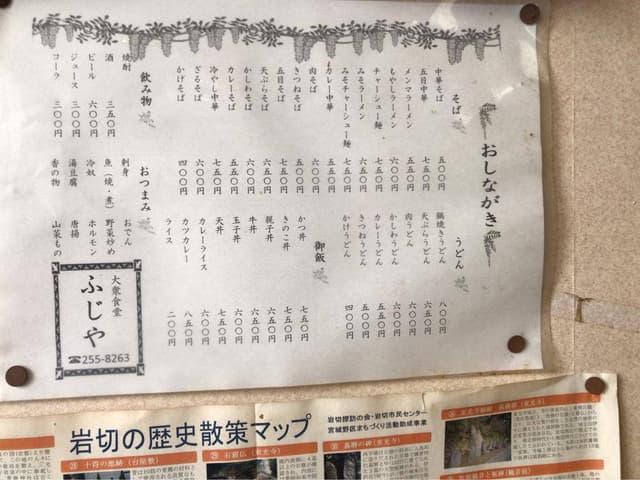 おしながき
そば
中華そば 五〇〇円
五目中華 七五〇円
メンマラーメン 五五〇円
もやしラーメン 六〇〇円
チャーシュー麺 七五〇円
みそラーメン
みそチャーシュー麺
カレー中華 五五〇円
肉そば 六〇〇円
きつねそば 五〇〇円
五目そば 七五〇円
天ぷらそば
かしわそば
カレーそば 五五〇円
冷やし中華 七五〇円
ざるそば
かけそば 四〇〇円
うどん
鍋焼きうどん 八〇〇円
天ぷらうどん 六五〇円
肉うどん 六〇〇円
かしわうどん 六〇〇円
カレーうどん 五五〇円
きつねうどん 五〇〇円
かけうどん 四〇〇円
御飯
かつ丼 七五〇円
きのこ丼 七五〇円
親子丼 六五〇円
牛丼 六五〇円
玉子丼 六〇〇円
天丼 七五〇円
カレーライス 六〇〇円
カツカレー 八五〇円
ライス 二〇〇円
飲み物
焼酎
酒 三五〇円
ビール 六〇〇円
ジュース 三〇〇円
コーラ 三〇〇円
おつまみ
刺身 おでん
魚(焼・煮) 野菜炒め
冷奴 ホルモン
湯豆腐 唐揚
香の物 山菜もの
大衆食堂
ふじや
☎255-8263
岩切の歴史散策マップ
岩切探訪の会・岩切市民センター
宮城野区まちづくり活動助成事業